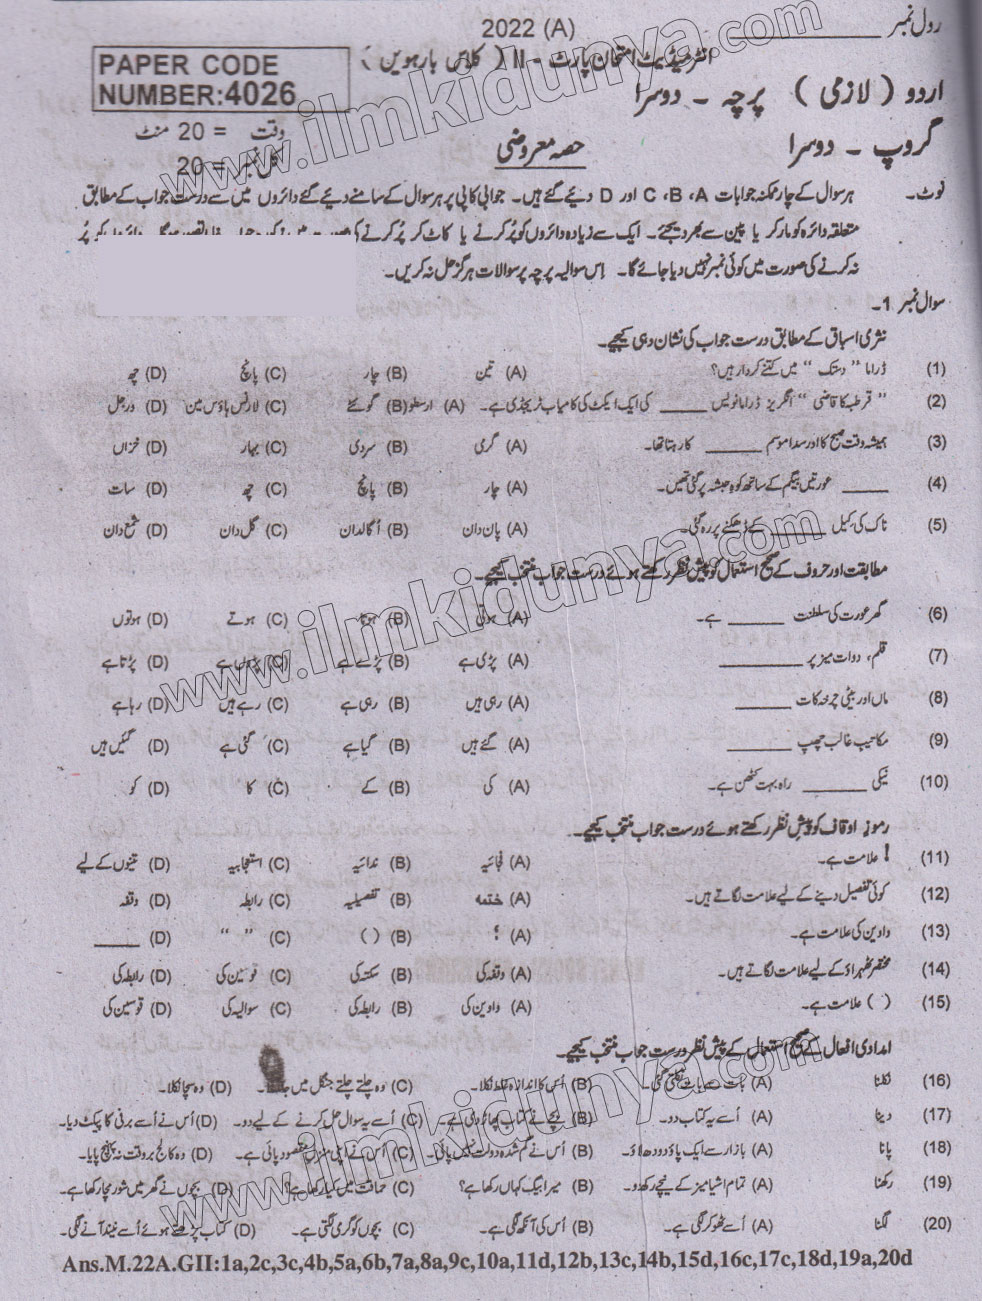 رول نمبر ــــــــــــــ
2022 (A)
انٹرمیڈیٹ امتحان پارٹ - II ( کلاس بارہویں )
PAPER CODE
NUMBER:4026
اردو (لازمی) پرچہ - دوسرا
وقت = 20 منٹ
گروپ - دوسرا
حصہ معروضی
کل نمبر = 20
نوٹ۔ ہر سوال کے چار ممکنہ جوابات A، B، C اور D دیئے گئے ہیں۔ جوابی کاپی پر ہر سوال کے سامنے دیئے گئے دائروں میں سے درست جواب کے مطابق
متعلقہ دائرہ کو مارکر یا پین سے بھر دیجئے۔ ایک سے زیادہ دائروں کو پُر کرنے یا کاٹ کر پُر کرنے کی صورت میں
نہ کرنے کی صورت میں کوئی نمبر نہیں دیا جائے گا۔ اِس سوالیہ پرچہ پر سوالات ہرگز حل نہ کریں۔
سوال نمبر 1۔
نثری اسباق کے مطابق درست جواب کی نشان دہی کیجیے۔
(1) ڈراما " دستک " میں کتنے کردار ہیں؟ (A) تین (B) چار (C) پانچ (D) چھ
(2) " قرطبہ کا قاضی " انگریز ڈراما نویس ــــــــ کی ایک ایکٹ کی کامیاب ٹریجڈی ہے۔ (A) ارسطو (B) گوئٹے (C) لارنس ہاؤس مین (D) ورجل
(3) ہمیشہ وقت صبح کا اور سدا موسم ــــــــ کا رہتا تھا۔ (A) گرمی (B) سردی (C) بہار (D) خزاں
(4) ــــــــ عورتیں بیگم کے ساتھ کوہِ حبشہ پر گئی تھیں۔ (A) چار (B) پانچ (C) چھ (D) سات
(5) ناک کی کیل ــــــــ کے ڈھکنے پر رہ گئی۔ (A) پان دان (B) اُگالدان (C) گل دان (D) شمع دان
مطابقت اور حروف کے صحیح استعمال کو پیشِ نظر رکھتے ہوئے درست جواب منتخب کیجیے۔
(6) گھر عورت کی سلطنت ــــــــ ہے۔ (A) ہوتی (B) ہوتا (C) ہوتے (D) ہوتوں
(7) قلم، دوات میز پر ــــــــ (A) پڑی ہے (B) پڑے ہے (C) پڑیں ہے (D) پڑتا ہے
(8) ماں اور بیٹی چرخہ کات ــــــــ (A) رہی ہیں (B) رہی ہے (C) رہے ہیں (D) رہا ہے
(9) مکاتیبِ غالب چھپ ــــــــ (A) گئے ہیں (B) گیا ہے (C) گئی ہے (D) گئیں ہیں
(10) نیکی ــــــــ راہ بہت کٹھن ہے۔ (A) کی (B) کے (C) کا (D) کو
رموزِ اوقاف کو پیشِ نظر رکھتے ہوئے درست جواب منتخب کیجیے۔
(11) ! علامت ہے۔ (A) فجائیہ (B) ندائیہ (C) استعجابیہ (D) تینوں کے لیے
(12) کوئی تفصیل دینے کے لیے علامت لگاتے ہیں۔ (A) ختمہ (B) تفصیلیہ (C) رابطہ (D) وقفہ
(13) واوین کی علامت ہے۔ (A) ؛ (B) ( ) (C) " " (D) ــــــــ
(14) مختصر ٹھہراؤ کے لیے علامت لگاتے ہیں۔ (A) وقفہ کی (B) سکتہ کی (C) قوسین کی (D) رابطہ کی
(15) ( ) علامت ہے۔ (A) واوین کی (B) رابطہ کی (C) سوالیہ کی (D) قوسین کی
امدادی افعال کے صحیح استعمال کے پیشِ نظر درست جواب منتخب کیجیے۔
(16) نکلنا (A) بات سے بات نکلتی گئی۔ (B) اُس کا اندازہ غلط نکلا۔ (C) وہ چلتے چلتے جنگل میں جا نکلا۔ (D) وہ سچا نکلا۔
(17) دینا (A) اُسے یہ کتاب دو۔ (B) بچے نے کتاب پھاڑ دی ہے۔ (C) اُسے یہ سوال حل کرنے کے لیے دو۔ (D) اُس نے اُسے برفی کا پیکٹ دیا۔
(18) پانا (A) بازار سے ایک پاؤ دودھ لاؤ۔ (B) اُس نے گم شدہ دولت نہیں پائی۔ (C) اُس نے اپنی منزلِ مقصود پائی ہے۔ (D) وہ کالج بر وقت نہ پہنچ پایا۔
(19) رکھنا (A) تمام اشیا میز کے نیچے رکھ دو۔ (B) میرا بیگ کہاں رکھا ہے؟ (C) حماقت میں کیا رکھا ہے؟ (D) بچوں نے گھر میں شور مچا رکھا ہے۔
(20) لگنا (A) اُسے ٹھوکر لگی ہے۔ (B) اُس کی آنکھ لگی ہے۔ (C) بچوں کو گرمی لگتی ہے۔ (D) کتاب پڑھتے ہوئے اُسے نیند آنے لگی۔
Ans.M.22A.GII:1a,2c,3c,4b,5a,6b,7a,8a,9c,10a,11d,12b,13c,14b,15d,16c,17c,18d,19a,20d
www.ilmkidunya.com
www.ilmkidunya.com
www.ilmkidunya.com